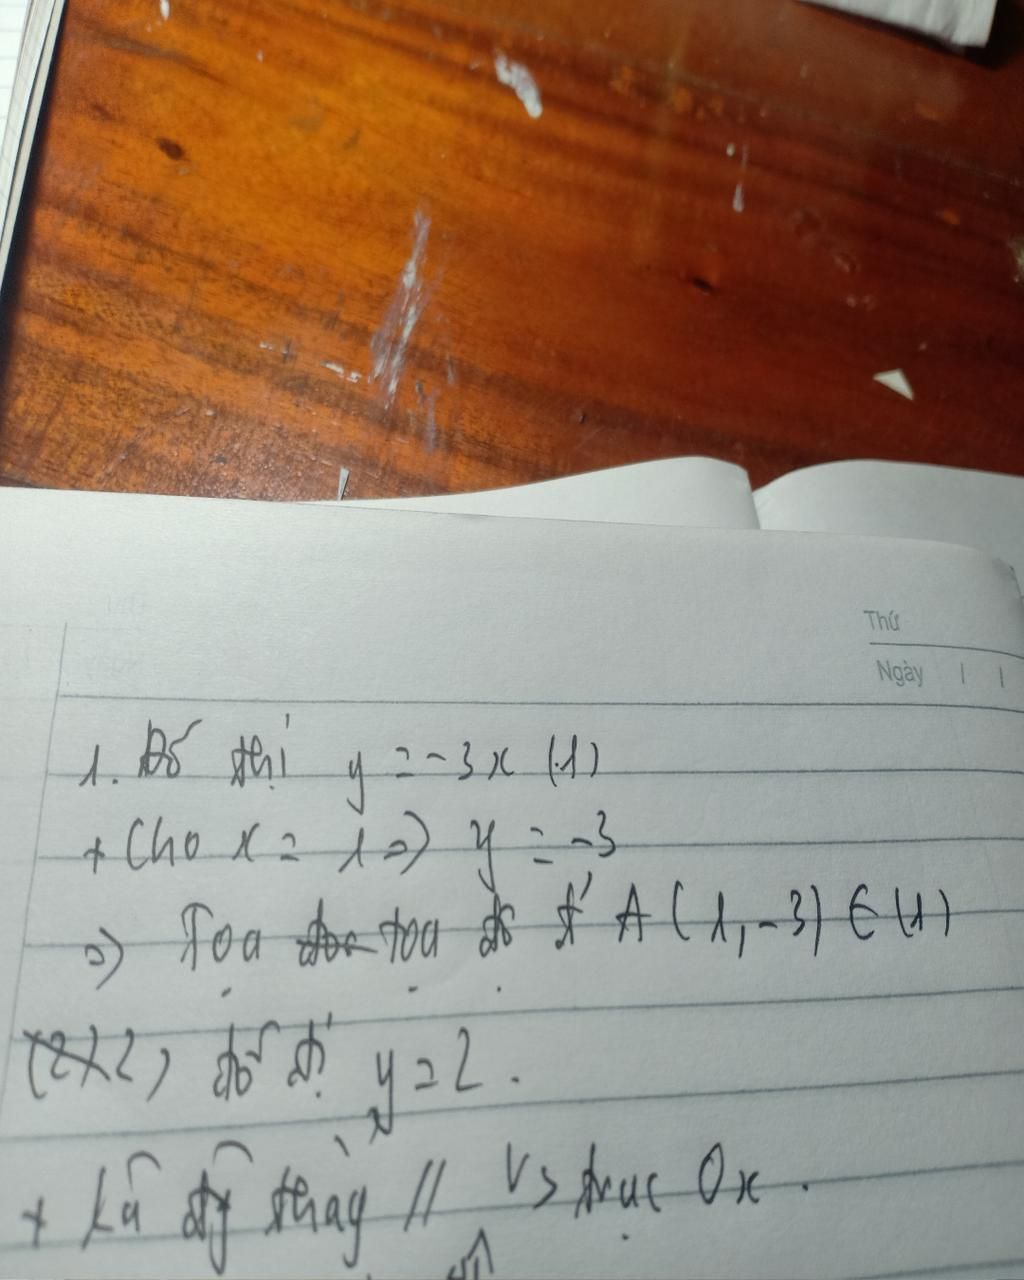 Thứ
Ngày / /
1. Đồ thị y = -3x (1)
+ Cho x = 1 => y = -3
=> Tọa tọa độ A (1, -3) ∈ (1)
2) đồ thị y = 2.
+ Là đg thẳng // vs trục Ox.